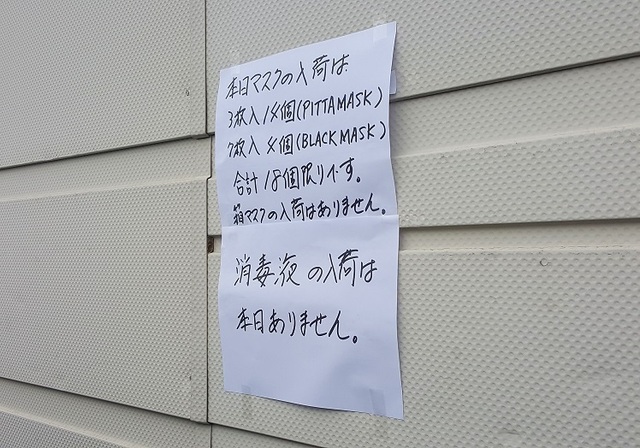 本日マスクの入荷は
3枚入14個(PITTAMASK)
7枚入 4個(BLACKMASK)
合計18個限りです。
箱マスクの入荷はありません。
消毒液の入荷は
本日ありません。